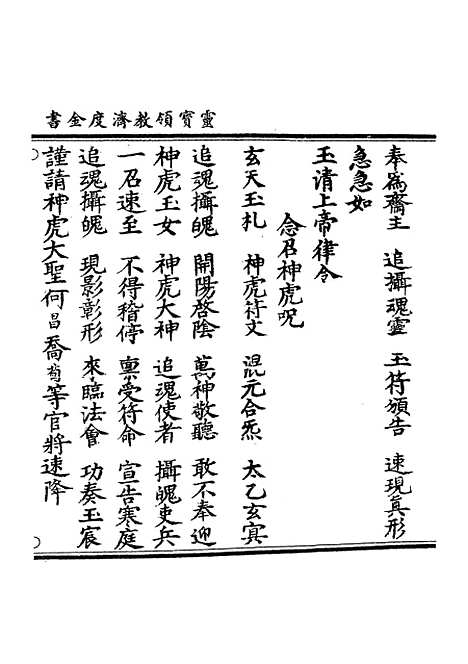 靈寶領教濟度金書
奉為齋主　追攝魂靈　玉符頒告　速現眞形
急急如
玉清上帝律令
念召神虎呪
玄天玉札　神虎符文　混元合炁　太乙玄冥
追魂攝魄　開陽啓陰　萬神敬聽　敢不奉迎
神虎玉女　神虎大神　追魂使者　攝魄吏兵
一召速至　不得稽停　禀受符命　宣告寒庭
追魂攝魄　現影彰形　來臨法會　功奏玉宸
謹請神虎大聖何昌喬蒭等官將速降